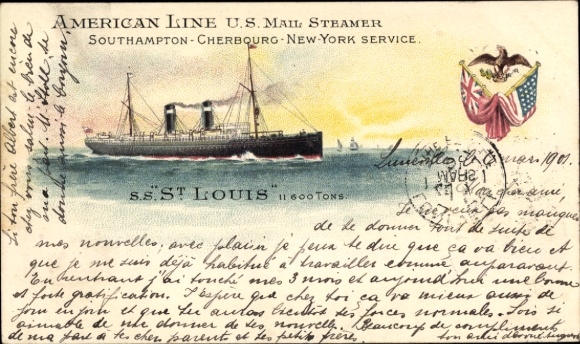 AMERICAN LINE U.S. MAIL STEAMER
SOUTHAMPTON - CHERBOURG - NEW-YORK SERVICE.
S.S. "ST LOUIS" 11 600 TONS.
le 6 mars 1901
pas manquer
de te donner tout de suite de
mes nouvelles, avec plaisir je peux te dire que ça va bien et
que je me suis déjà habitué à travailler comme auparavant
En rentrant j'ai touché mes 3 mois et aujourd'hui une bonne
et forte gratification. J'espère que chez toi ça va mieux aussi de
jour en jour et que tu auras bientôt tes forces normales. Sois si
aimable de me donner de tes nouvelles. Beaucoup de compliments
de ma part à tes chers parents et tes petits frères.
ton ami dévoué
Si ton père Albert est encore
chez vous salue le bien de
ma part